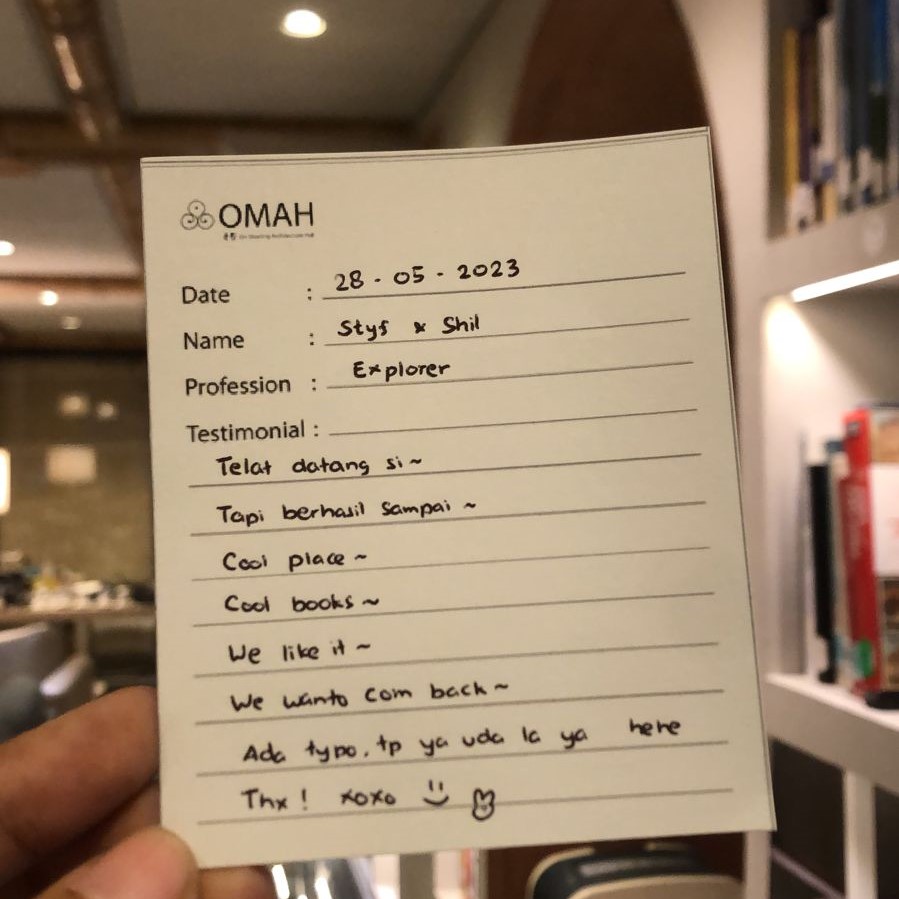 OMAH
Date : 28 - 05 - 2023
Name : Stys x Shil
Profession : Explorer
Testimonial :
Telat datang si ~
Tapi berhasil sampai ~
Cool place ~
Cool books ~
We like it ~
We wanto com back ~
Ada typo, tp ya uda la ya hehe
Thx ! xoxo